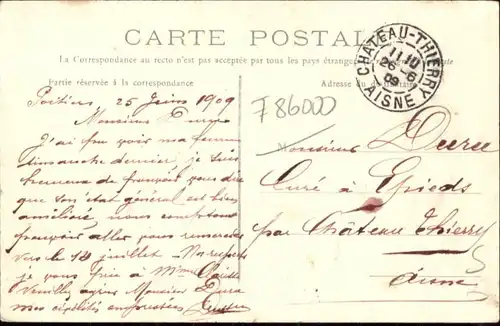 CARTE POSTALE
La Correspondance au recto n'est pas acceptée par tous les pays étrangers
Partie réservée à la correspondance
Adresse du
CHATEAU-THIERRY
11 10
26 - 6
09
AISNE
F 86000
Poitiers 25 Juin 1909
Monsieur
J'ai pu voir ma femme
dimanche dernier, je suis
heureux de pouvoir vous dire
que son état général est bien
amélioré nous comptons
pouvoir aller vous remercier
vers le 14 juillet
je vous prie à Mme
Veuillez agréer Monsieur
mes civilités empressées
Monsieur
Curé à Epieds
par Château Thierry
Aisne